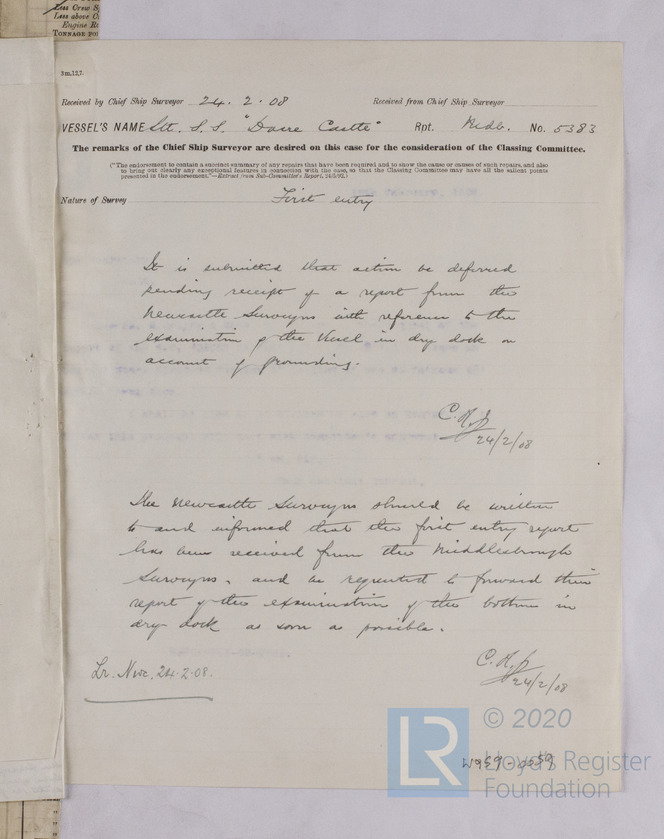 Less Crew S
Less above C
Engine R
TONNAGE FO
Received by Chief Ship Surveyor 24. 2. 08 Received from Chief Ship Surveyor
VESSEL'S NAME Stl. S.S. "Dacre Castle" Rpt. Midb. No. 5383
The remarks of the Chief Ship Surveyor are desired on this case for the consideration of the Classing Committee.
("The endorsement to contain a succinct summary of any repairs that have been required and to show the cause or causes of such repairs, and also
to bring out clearly any exceptional features in connection with the case, so that the Classing Committee may have all the salient points
presented in the endorsement."—Extract from Sub-Committee's Report.
Nature of Survey First entry
It is submitted that action be deferred
pending receipt of a report from the
Newcastle Surveyors with reference to the
examination of the Vessel in dry dock on
account of grounding.
24/2/08
The Newcastle Surveyors should be written
to and informed that the first entry report
has been received from the Middlesbrough
Surveyors, and be requested to forward their
report of the examination of the bottom in
dry dock as soon as possible.
24/2/08
Lr. Nwc. 24.2.08.
LR
© 2020
Lloyd's Register
Foundation
W959-0059